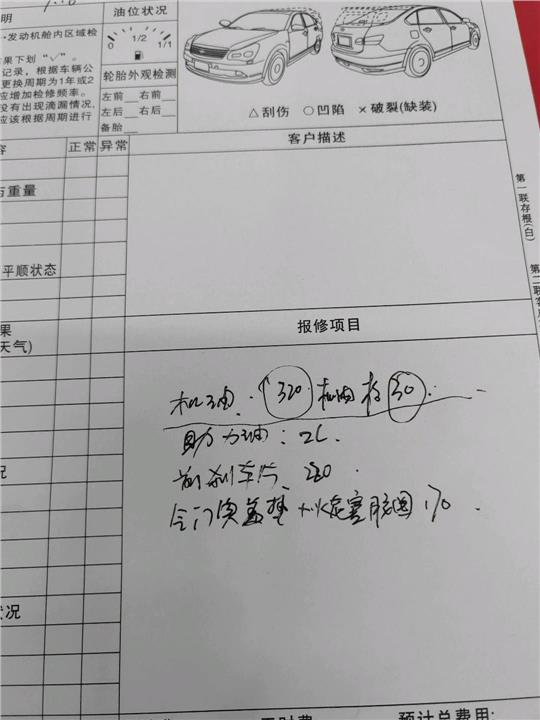 明
油位状况
·发动机舱内区域检
0 1/2 1/1
果下划“√”。
记录，根据车辆公
更换周期为1年或2
应增加检修频率。
没有出现滴漏情况，
应该根据周期进行
轮胎外观检测
左前__右前__
左后__右后__
备胎__
△刮伤 ○凹陷 ×破裂(缺装)
容 正常 异常
客户描述
与重量
平顺状态
果
天气)
报修项目
机油 320 机油格 30
助力油：2L
前刹车片 220
气门室盖垫 + 火花塞胶圈 170
况
状况
预计总费用:
第一联存根(白)
第二联客